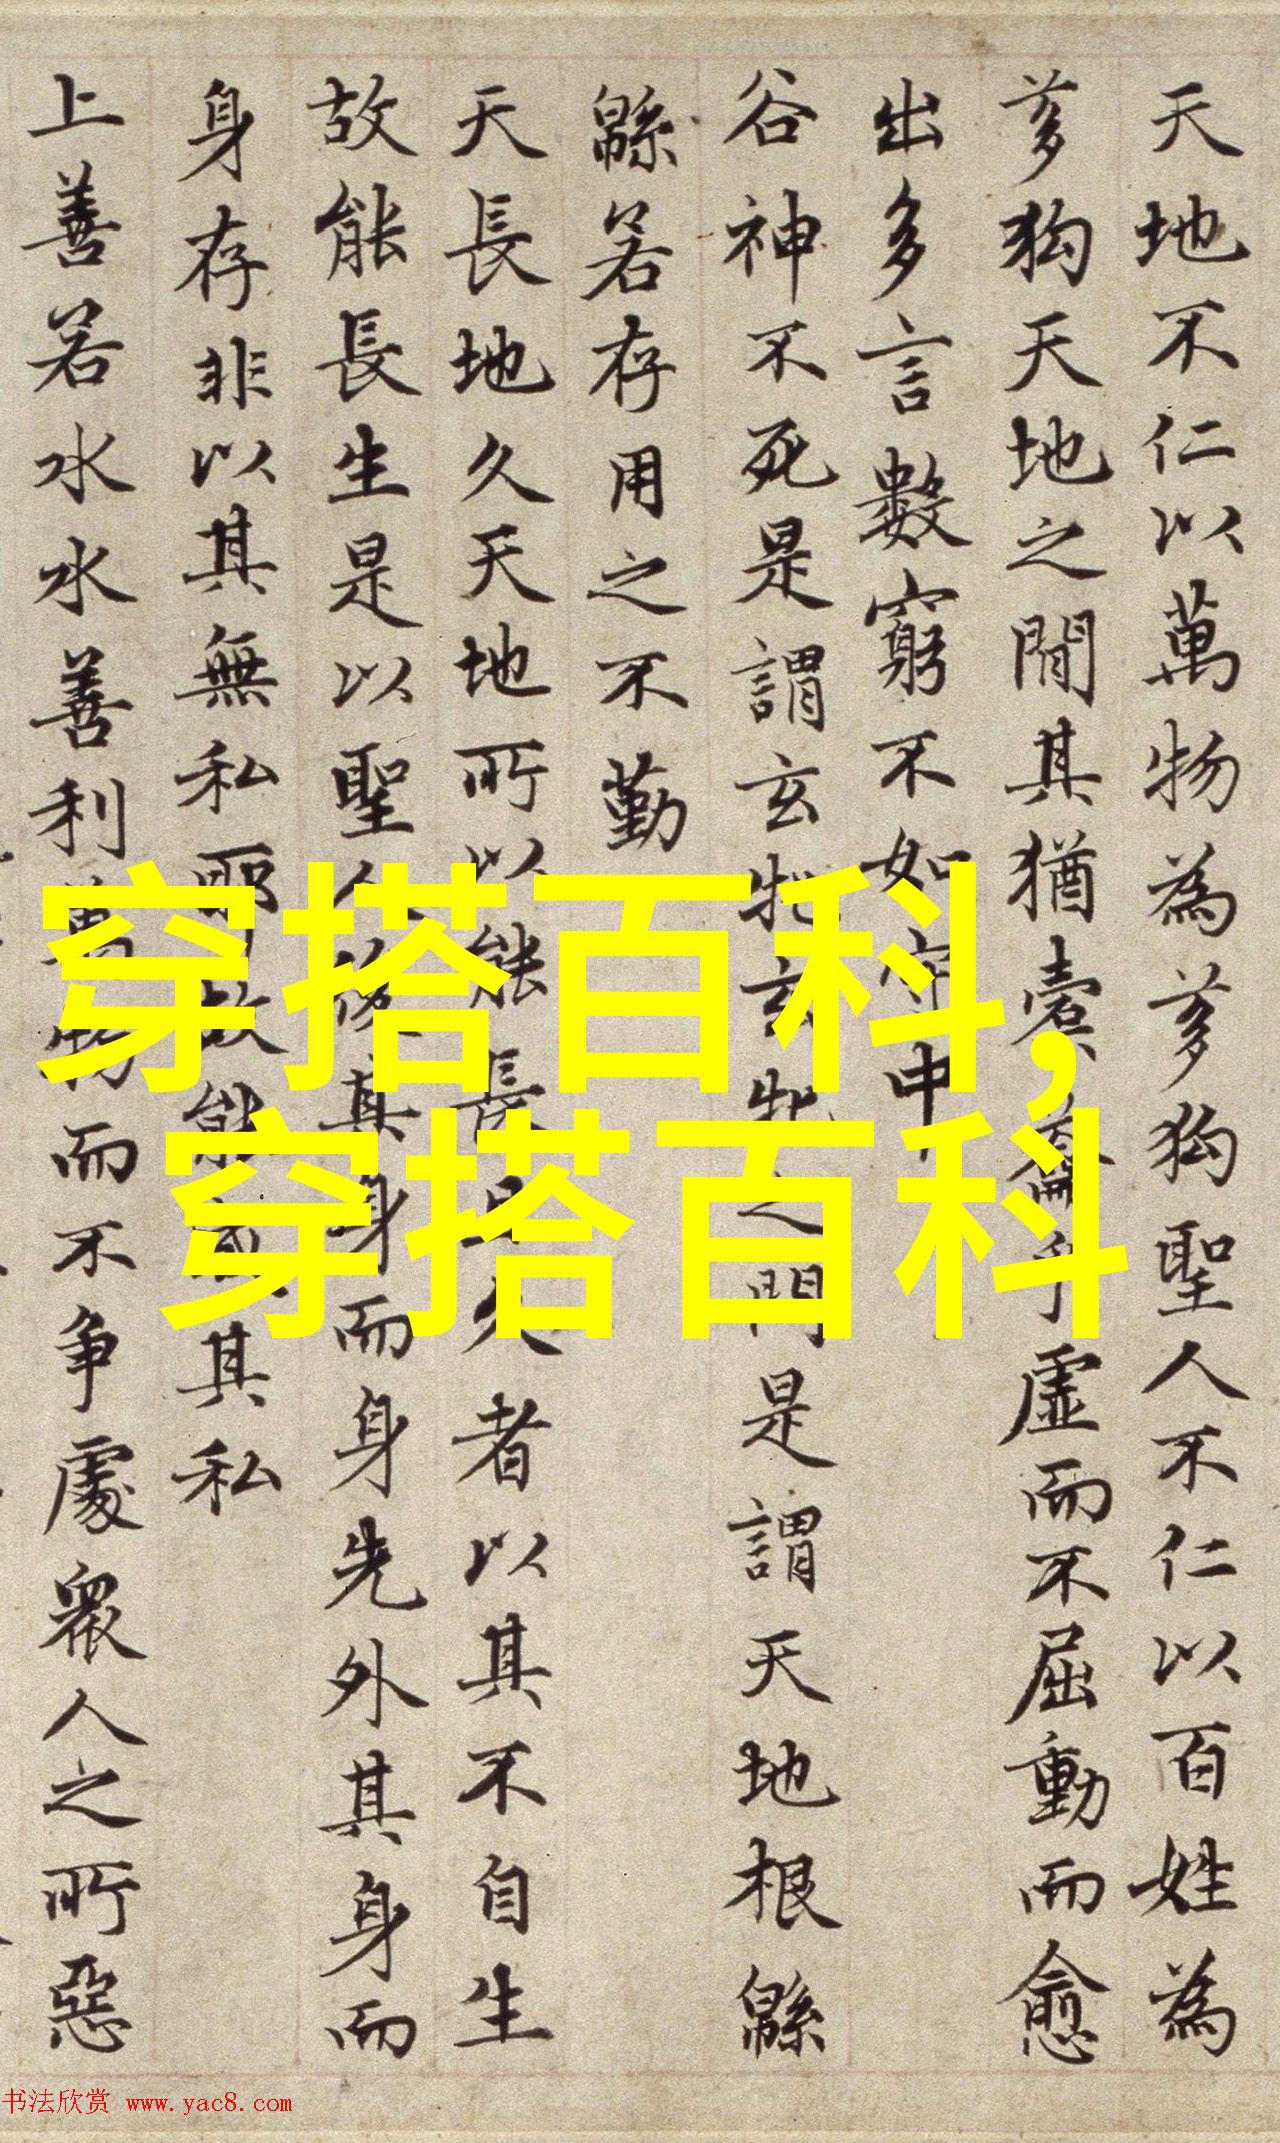 天地不仁以萬物為芻狗聖人不仁以百姓為
芻狗天地之間其猶橐籥乎虛而不屈動而愈
出多言數窮不如守中
谷神不死是謂玄牝玄牝之門是謂天地根緜
緜若存用之不勤
天長地久天地所以能長且久者以其不自生
故能長生是以聖人後其身而身先外其身而
身存非以其無私耶故能成其私
上善若水水善利萬物而不争處眾人之所惡
穿搭百科,
穿搭百科
书法欣赏 www.yac8.com